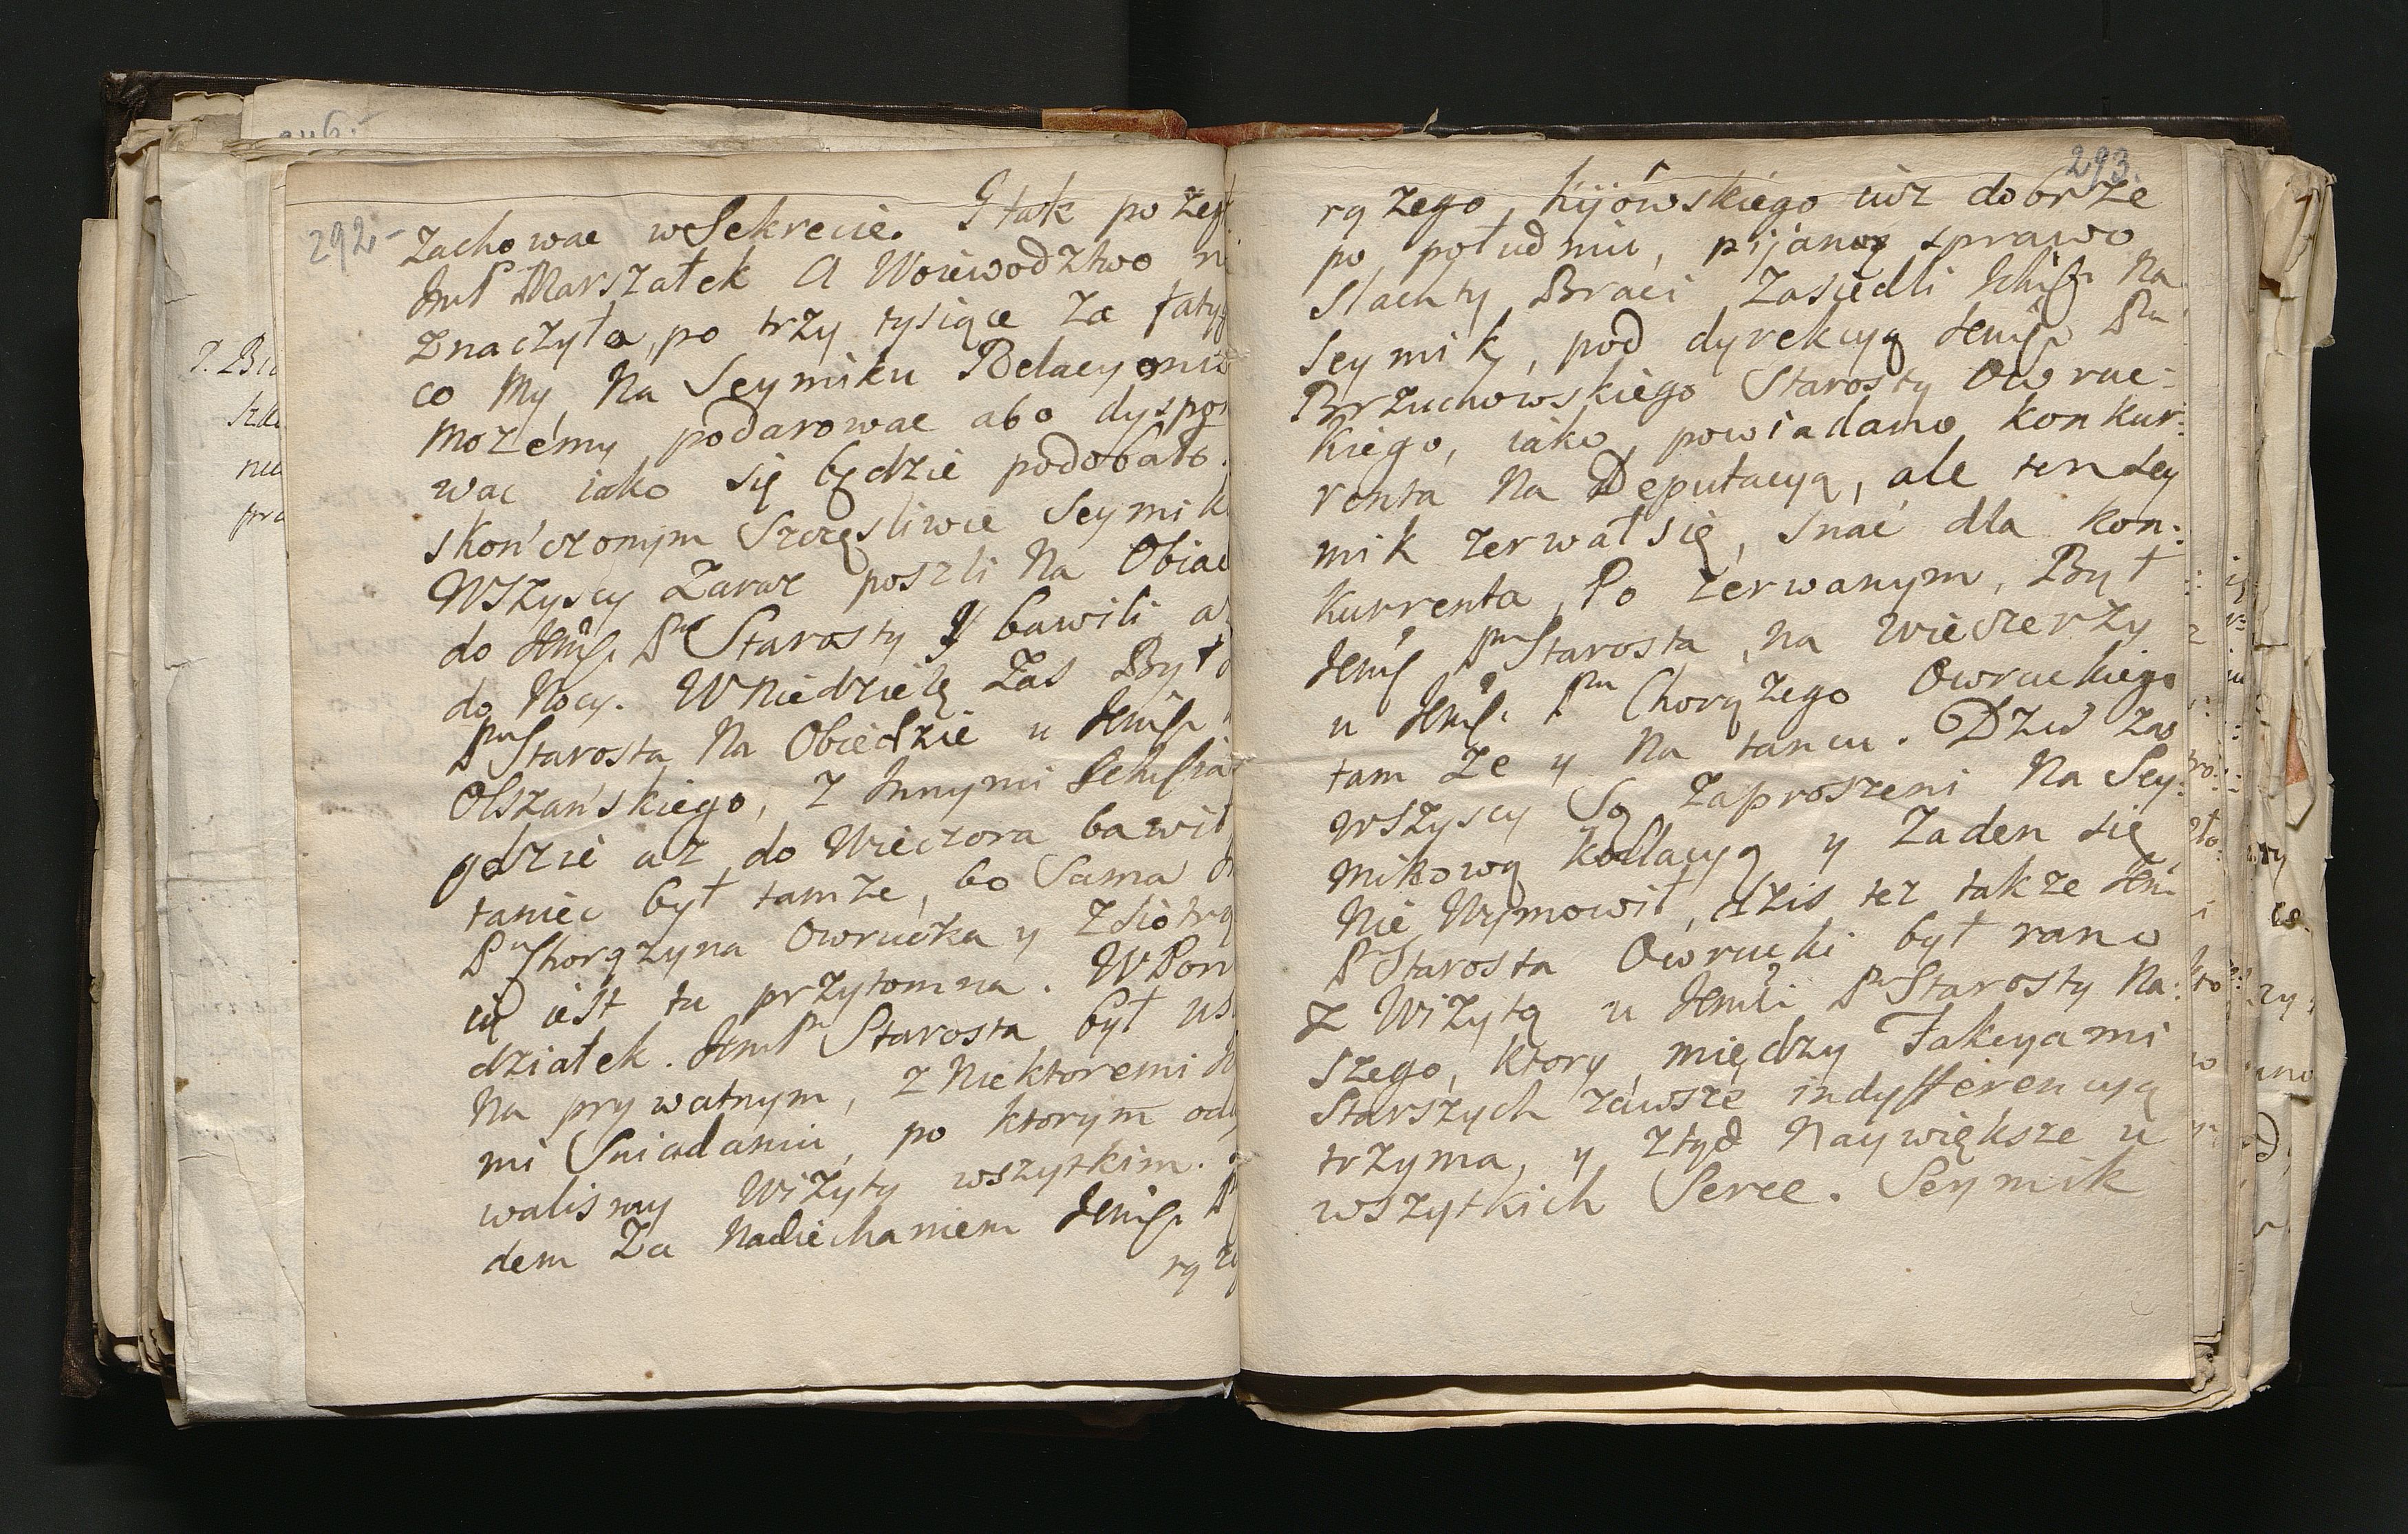 292
Zachowac w Sekrecie. I tak po
Marszałek A Woiewodztwo
Znaczyła, po trzy tysiące Za
co My Na Seymiku
Mozémy podarowac abo
wac iako się będzie podobało.
skończonym Szczęsliwie Seymik
Wszyscy Zaraz poszli Na
do Jemsci Pna Starosty y bawili
do Nocy. W Niedzielę Zas Był
Pn Starosta Na Obiedzie u
Olszańskiego, Z Innymi
gdzie az do Wieczora
taniec był tamze, bo Sama
Pn Chorązyna Owrucka y
iest tu przytomna. W
działek. Starosta był
Na prywatnym, z Niektoremi
mi Sniadaniu, po ktorym
walismy Wizyty wszytkim.
dem Za Nadiechaniem
293.
rązego Kijówskiego iuz dobrze
po południu, pijano sprawo
Slachty Braci Zasiedli Na
Seymik, pod dyrekcyą Pna
Brzuchowskiego Starosty Owruc:
kiego, iako powiadano konkur:
renta Na Deputacyą, ale ten Sey
mik zerwał się, snać dla kon:
kurrenta, Po zerwanym, Był
Pn Starosta, na wieczerzy
u Pna Chorązego Owruckiego
tam ze y Na tancu. Dziś zas
wszyscy Są Zaproszeni Na Sey:
mikową kollacyą y Zaden się
Nie Wymowił, dzis tez takze
Pn Starosta Owrucki był rano
z Wizytą u Pna Starosty Na:
szego, ktory między Fakcyami
Starszych záwsze indyfferencyą
trzyma, y ztąd Naywiększe u
wszytkich Serce. Seymik